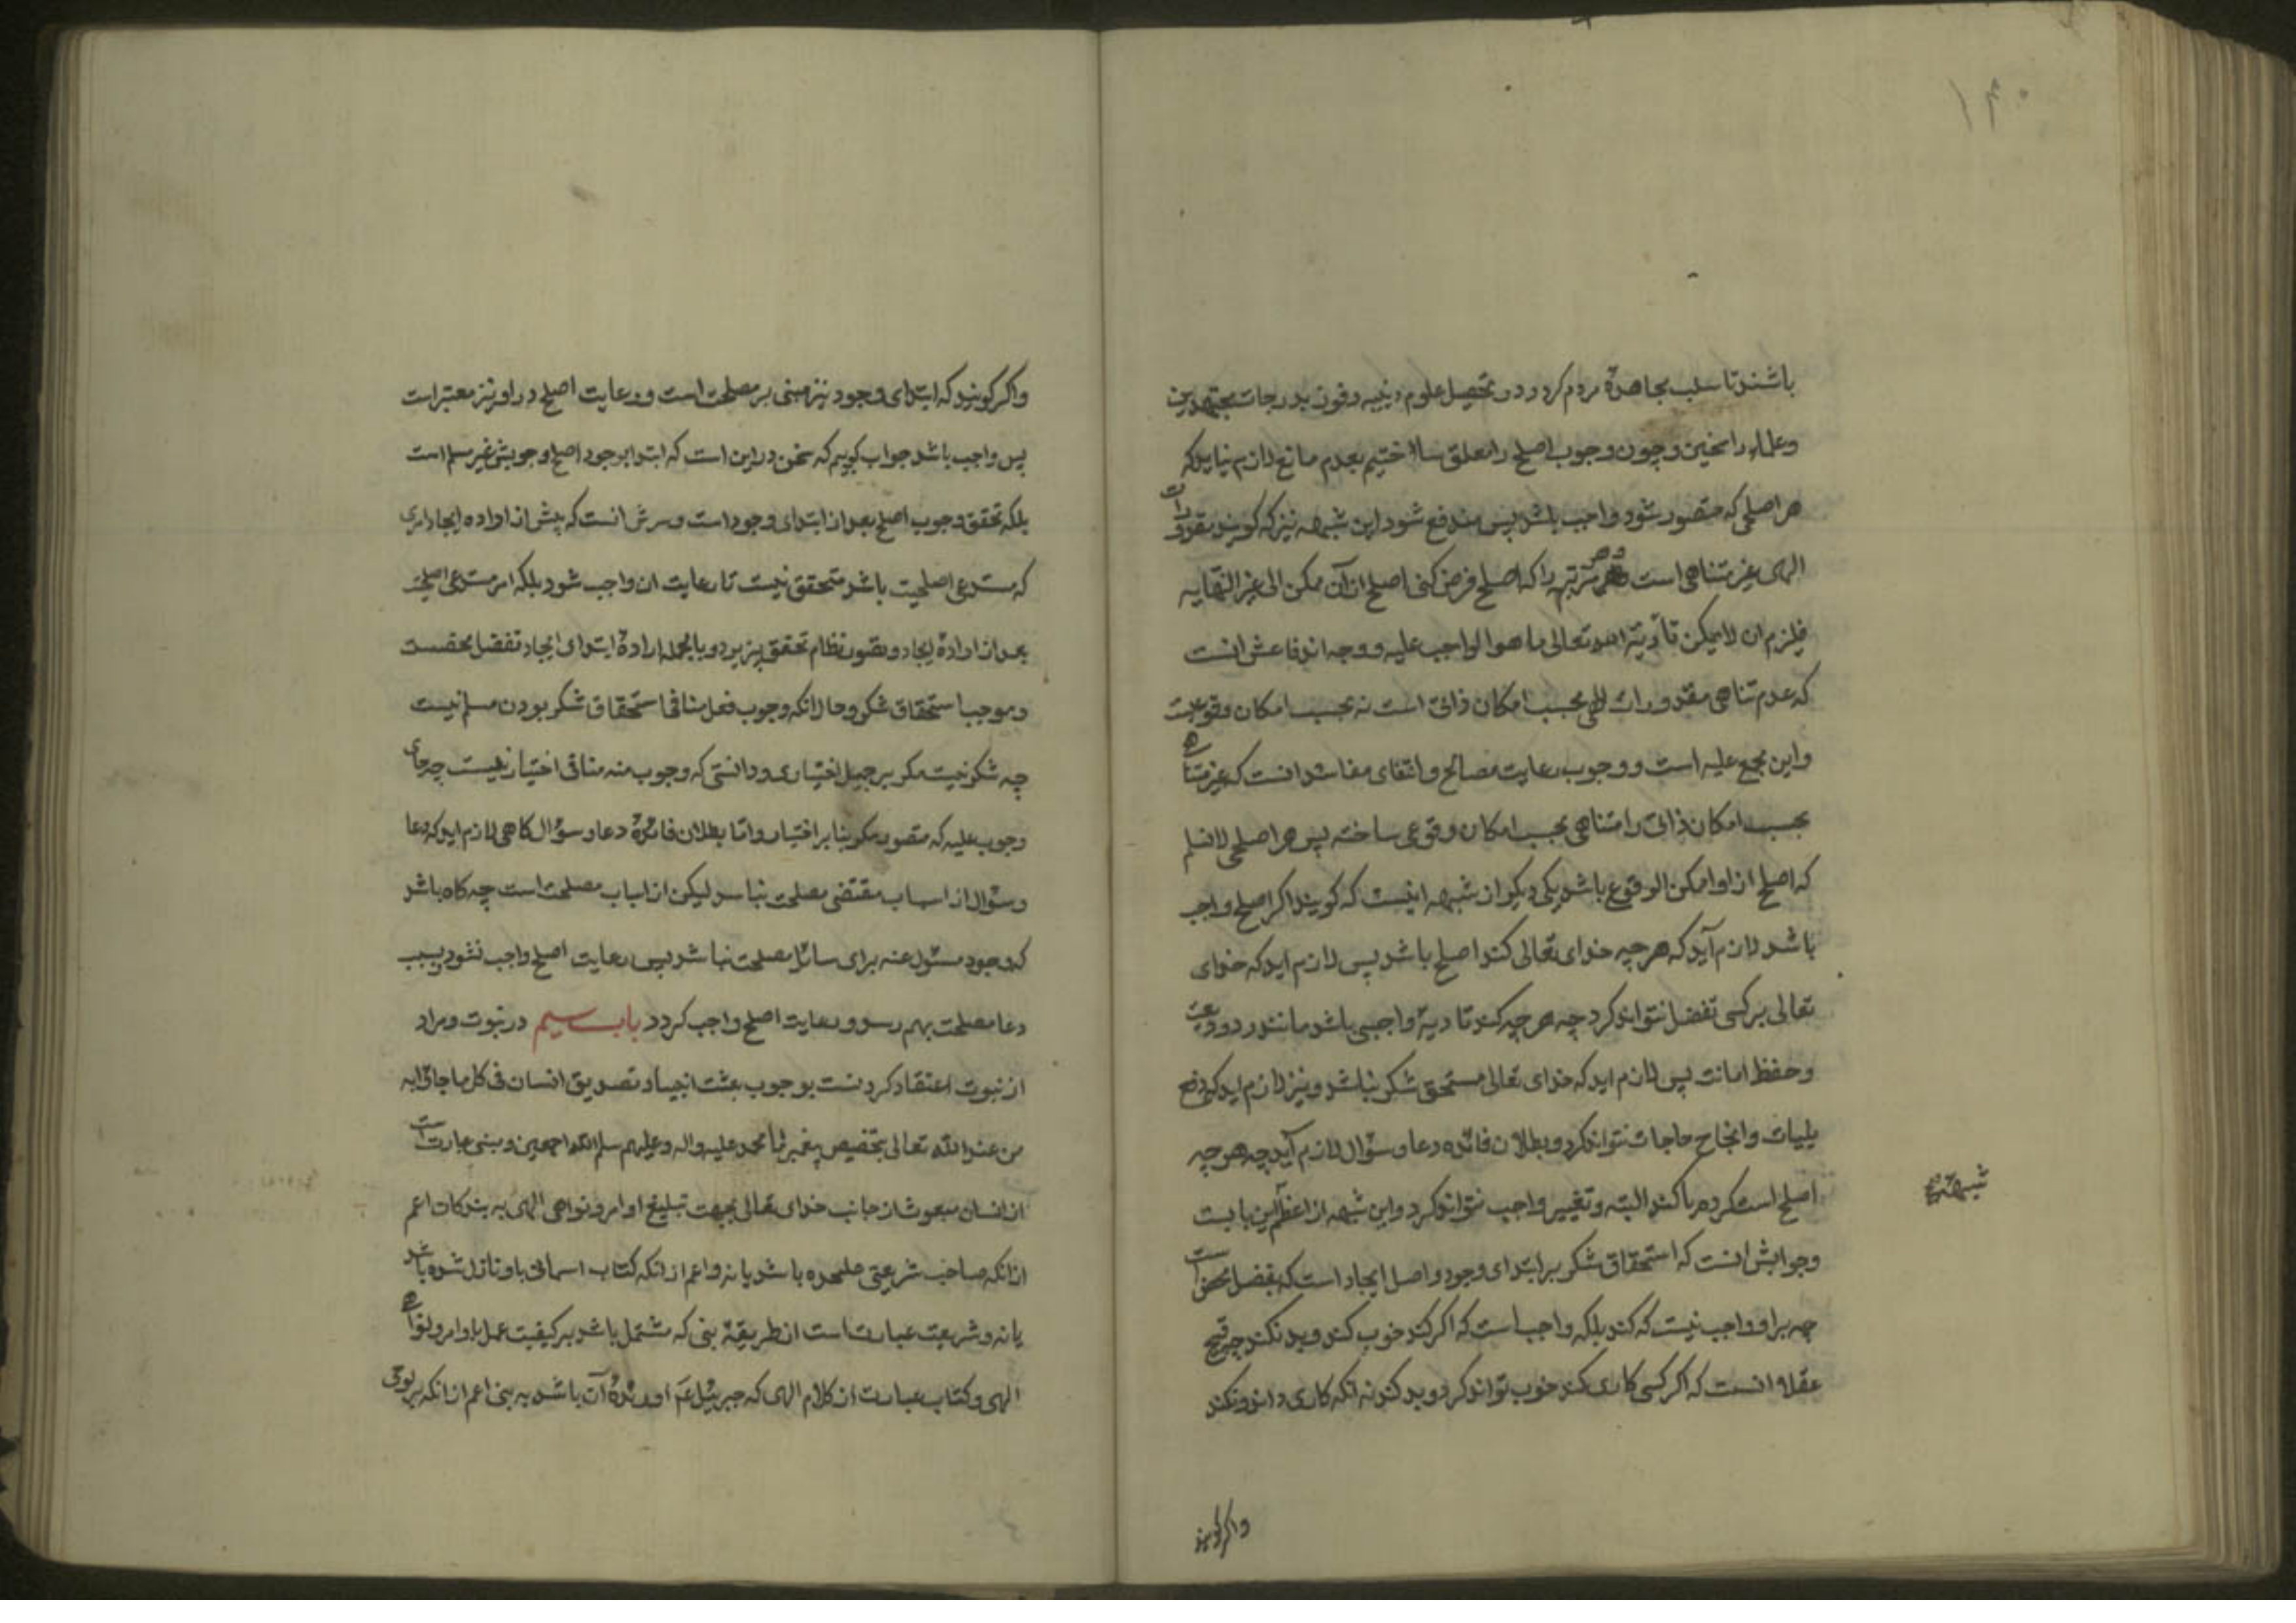 ۱۳۰
باشند تا سلب مجاهدهٔ مردم کردد در تحصیل علوم دینیه و فوت بدرجات مجتهدین
وعلماء راسخین و چون وجوب اصلح را معلق ساختیم بعدم مانع لازم نیاید که
هر اصلحی که متصور شود واجب باشد پس مندفع شود این شبهه نیز که کویند مقدورات
الهی غیر متناهی است و هر مرتبه را که اصلح فرض کنی اصلح از آن ممکن الی غیر النهایه
فیلزم ان لا یمکن تأدیة الله تعالی ما هو الواجب علیه و وجه اندفاعش انست
که عدم تناهی مقدورات الهی بحسب امکان ذاتی است نه بحسب امکان وقوعیست
واین مجمع علیه است و وجوب رعایت مصالح و انتفای مفاسد انست که غیر متناهی
بحسب امکان ذاتی را متناهی بحسب امکان وقوعی ساخته پس هر اصلحی لا نسلم
که اصلح از او امکن الوقوع باشد یکی دیکر از شبهه اینست که کویند اکر اصلح واجب
باشد لازم آید که هر چیه خدای تعالی کند اصلح باشد پس لازم اید که خدای
تعالی بر کسی تفضل نتواند کرد چه هر چیه کند تادیهٔ واجبی باشد مانند رد ودیعت
وحفظ امانت پس لازم اید که خدای تعالی مستحق شکر نباشد و نیز لازم اید که دفع
بلیات وانجاح حاجات نتواند کرد و بطلان فائده دعا و سؤال لازم آید چه هر چیه
اصلح است کرده یا کند البته و تغییر واجب نتواند کرد واین شبهه از اعظم این بابست
وجوابش انست که استحقاق شکر بر ابتدای وجود و اصل ایجاد است که تفضل محض است
چه بر او واجب نیست که کند بلکه واجب است که اکر کند خوب کند و بد نکند چه قبیح
عقلا انست که اکر کسی کاری کند خوب تواند کرد و بد کند نه انکه کاری داند و نکند
شبهه
واکر کویند
واکر کویند که ابتدای وجود نیز مبنی بر مصلحت است و رعایت اصلح در او نیز معتبر است
پس واجب باشد جواب کوییم که سخن در این است که ابتدا بوجود اصلح وجوبش غیر مسلم است
بلکه تحقق وجوب اصلح بعد از ابتدای وجود است و سرش انست که پیش از اراده ایجاد امری
که مستدعی اصلحیت باشد متحقق نیست تا رعایت ان واجب شود بلکه امر مستدعی اصلحیت
بعد از ارادهٔ ایجاد و تصور نظام تحقق پذیرد و بالجمله ارادهٔ ابتدای ایجاد تفضل محضست
و موجب استحقاق شکر و حال انکه وجوب فعل منافی استحقاق شکر بودن مسلم نیست
چه شکر نیست مکر بر جمیل اختیاری و دانستی که وجوب منه منافی اختیار نیست چه جای
وجوب علیه که متصور مکر بنا بر اختیار واما بطلان فائدهٔ دعا و سؤال کاهی لازم اید که دعا
وسؤال از اسباب مقتضی مصلحت نباشد لیکن از اسباب مصلحت است چه کاه باشد
که وجود مسئول عنه برای سائل مصلحت نباشد پس رعایت اصلح واجب نشود و بسبب
دعا مصلحت بهم رسد و رعایت اصلح واجب کردد باب سیم در نبوت و مراد
از نبوت اعتقاد کردنست بوجوب بعثت انبیا و تصدیق انسان فی کل ما جاؤا به
من عند الله تعالی بتخصیص پیغمبر ما محمد علیه واله وعلیهم سلم الله اجمعین و نبی عبارت است
از انسان مبعوث از جانب خدای تعالی بجهت تبلیغ اوامر و نواهی الهی به بندکان اعم
از انکه صاحب شریعتی علیحده باشد یا نه و اعم از انکه کتاب اسمانی باو نازل شده باشد
یا نه و شریعت عبارت است از طریقهٔ نبی که مشتمل باشد بر کیفیت عمل باوامر و نواهی
الهی و کتاب عبارت از کلام الهی که جبرئیل عم اورندهٔ آن باشد به نبی اعم از انکه بر لوحی